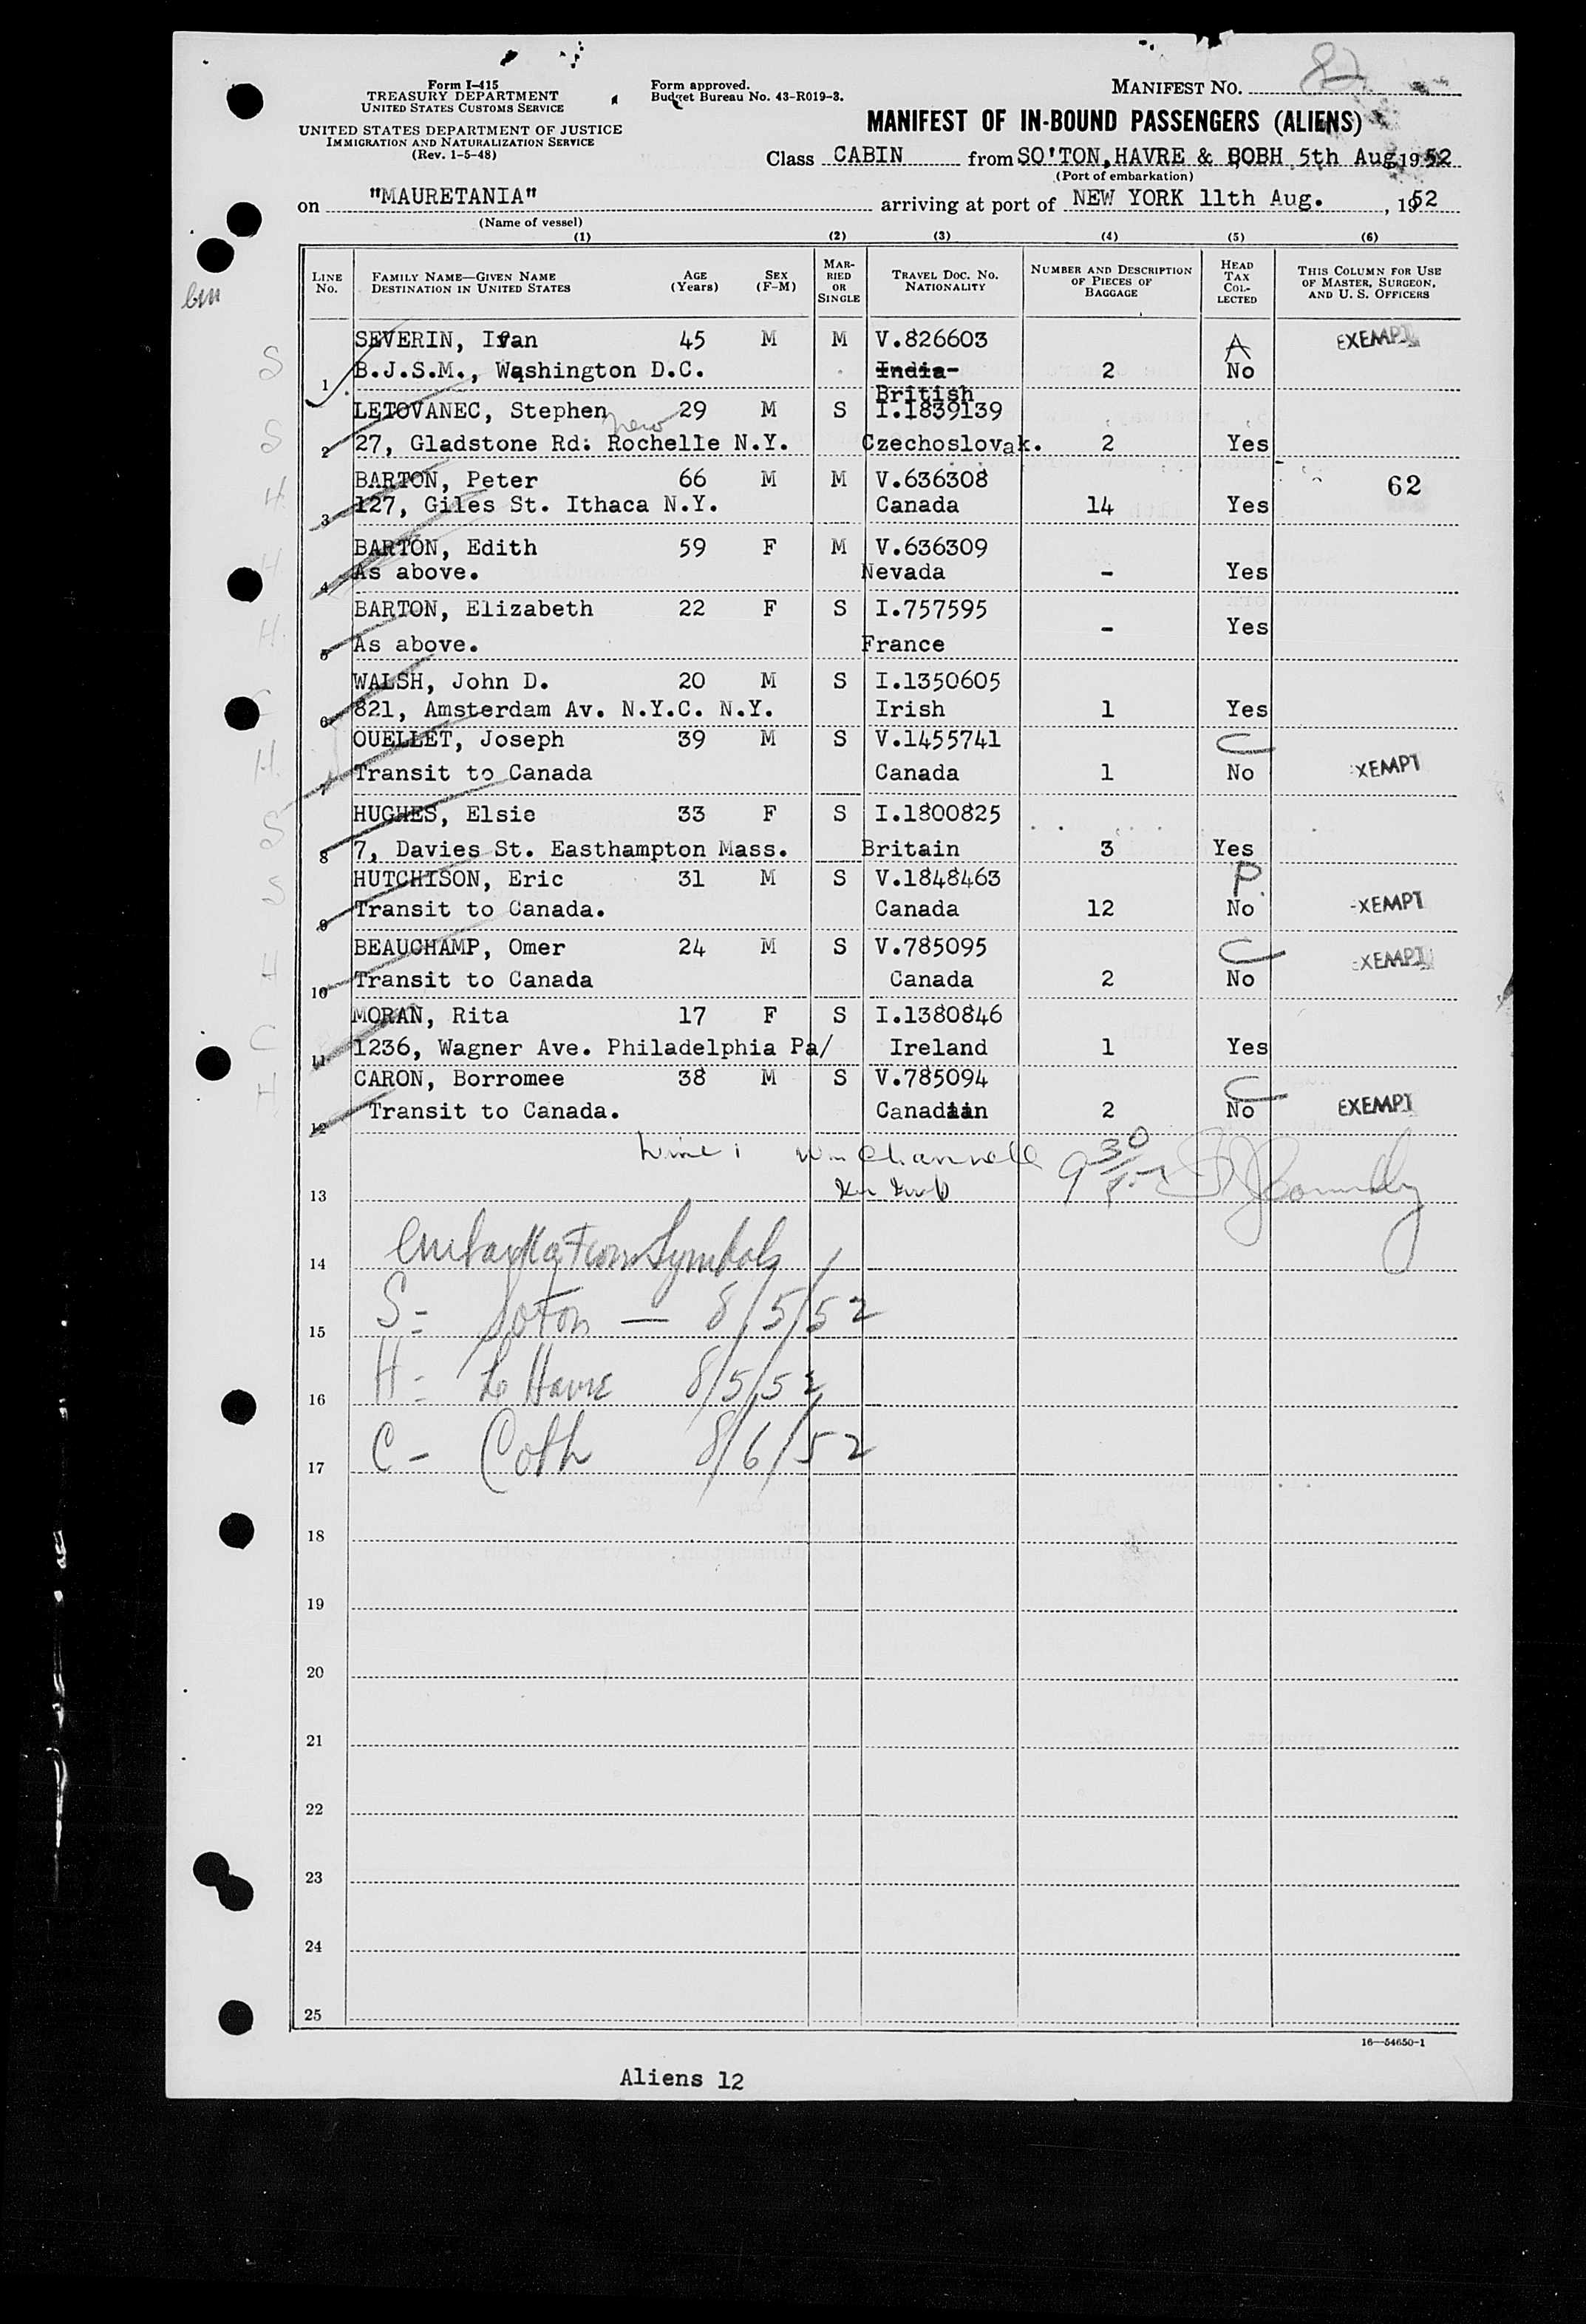 Form I-415
TREASURY DEPARTMENT
UNITED STATES CUSTOMS SERVICE
UNITED STATES DEPARTMENT OF JUSTICE
IMMIGRATION AND NATURALIZATION SERVICE
(Rev. 1-5-48)
Form approved.
Budget Bureau No. 43-R019-3.
MANIFEST No. 82
MANIFEST OF IN-BOUND PASSENGERS (ALIENS)
Class CABIN from SO'TON, HAVRE & BOBH 5th Aug 1952
(Port of embarkation)
on "MAURETANIA" arriving at port of NEW YORK 11th Aug. , 1952
(Name of vessel)
(1) (2) (3) (4) (5) (6)
LINE No. FAMILY NAME—GIVEN NAME DESTINATION IN UNITED STATES AGE (Years) SEX (F-M) MARRIED OR SINGLE TRAVEL DOC. No. NATIONALITY NUMBER AND DESCRIPTION OF PIECES OF BAGGAGE HEAD TAX COLLECTED THIS COLUMN FOR USE OF MASTER, SURGEON, AND U. S. OFFICERS
SEVERIN, Ivan 45 M M V.826603 A EXEMPT
S 1 B.J.S.M., Washington D.C. India- 2 No
British
LETOVANEC, Stephen 29 M S I.1839139
new
S 2 27, Gladstone Rd: Rochelle N.Y. Czechoslovak. 2 Yes
BARTON, Peter 66 M M V.636308 62
H. 3 127, Giles St. Ithaca N.Y. Canada 14 Yes
BARTON, Edith 59 F M V.636309
H 4 As above. Nevada - Yes
BARTON, Elizabeth 22 F S I.757595
H. 5 As above. France - Yes
WALSH, John D. 20 M S I.1350605
C 6 821, Amsterdam Av. N.Y.C. N.Y. Irish 1 Yes
OUELLET, Joseph 39 M S V.1455741 C
H. 7 Transit to Canada Canada 1 No XEMPT
HUGHES, Elsie 33 F S I.1800825
S 8 7, Davies St. Easthampton Mass. Britain 3 Yes
HUTCHISON, Eric 31 M S V.1848463 P.
S 9 Transit to Canada. Canada 12 No -XEMPT
BEAUCHAMP, Omer 24 M S V.785095 C EXEMPT
H 10 Transit to Canada Canada 2 No
MORAN, Rita 17 F S I.1380846
C 11 1236, Wagner Ave. Philadelphia Pa/ Ireland 1 Yes
CARON, Borromee 38 M S V.785094 C
H. 12 Transit to Canada. Canadian 2 No EXEMPT
Line 1 930
13
14 Embarkation Symbols
15 S = Soton — 8/5/52
16 H = Le Havre 8/5/52
17 C - Cobh 8/6/52
18
19
20
21
22
23
24
25
16—54650-1
Aliens 12